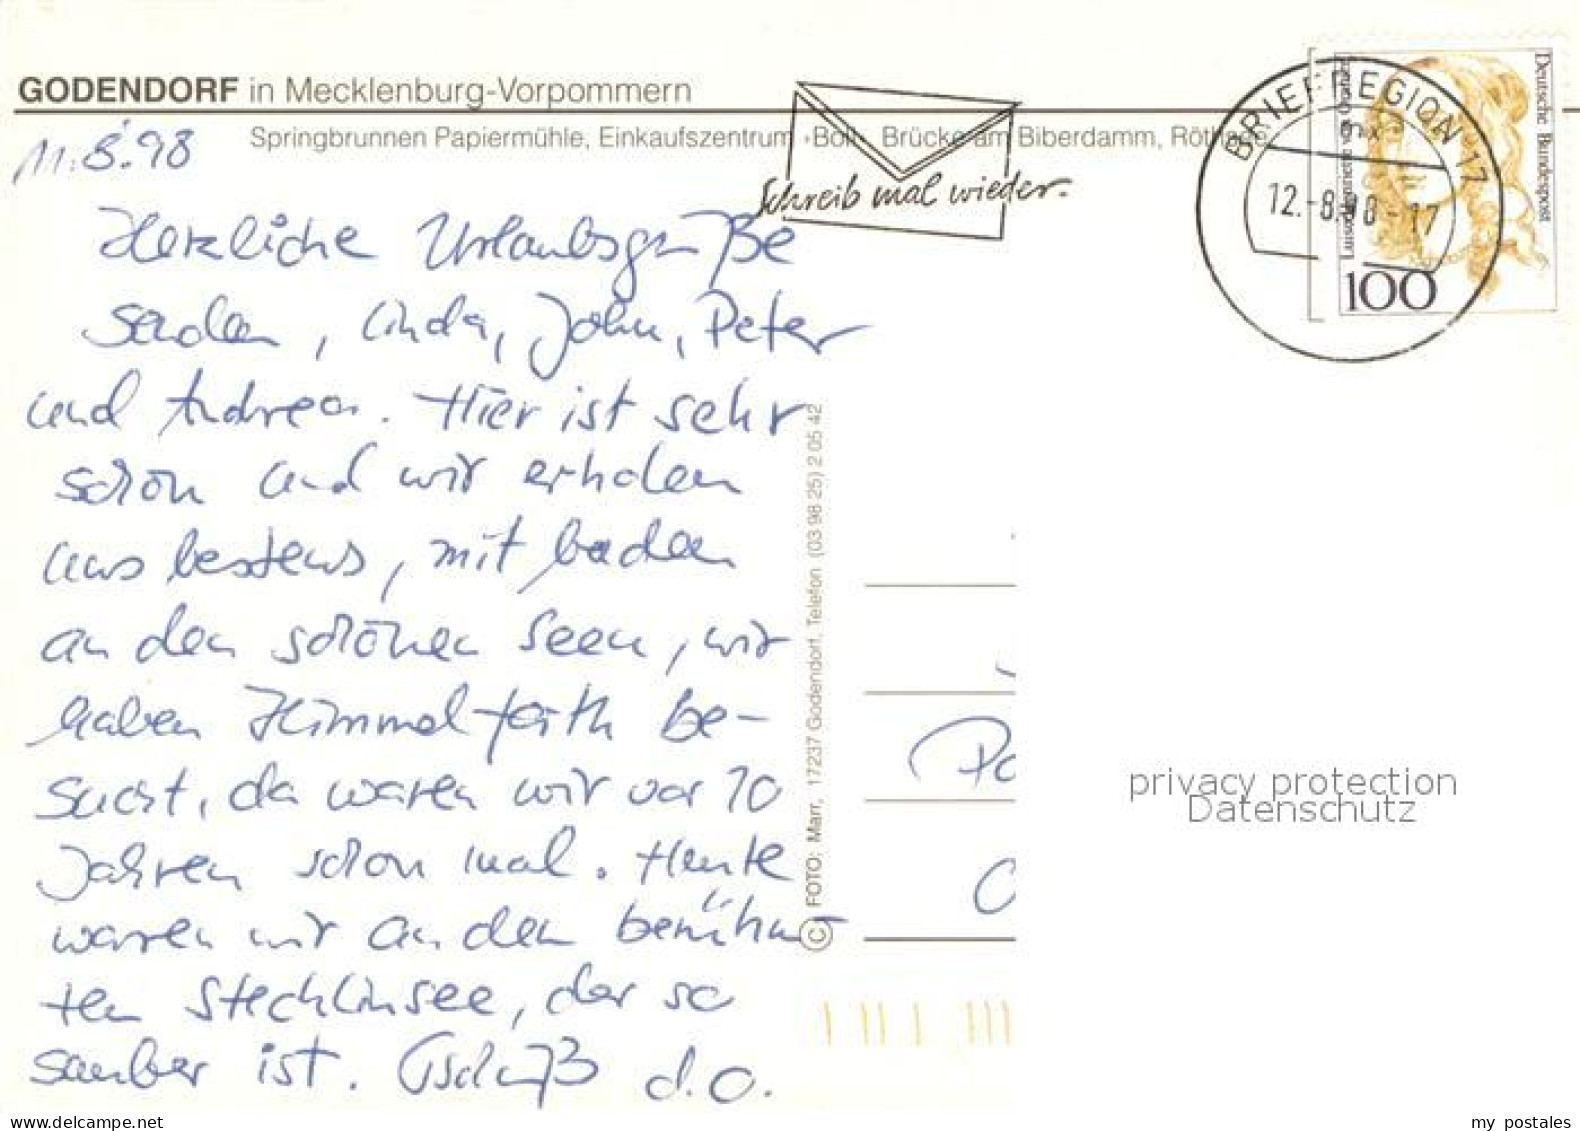 GODENDORF in Mecklenburg-Vorpommern
Springbrunnen Papiermühle, Einkaufszentrum "Bolt", Brücke am Biberdamm,
11.8.98
Herzliche Urlaubsgrüße
senden, Linda, John, Peter
und Andrea. Hier ist sehr
schön und wir erholen
uns bestens, mit baden
an den schönen Seen, wir
haben Himmelpforth be-
sucht, da waren wir vor 10
Jahren schon mal. Heute
waren wir an den berühm-
ten Stechlinsee, der so
sauber ist. Tschüß d.O.
© FOTO: Marr, 17237 Godendorf, Telefon (03 98 25) 2 05 42
Schreib mal wieder.
BRIEFREGION 17
12.-8.98-17
Deutsche Bundespost
100
privacy protection
Datenschutz
my postales